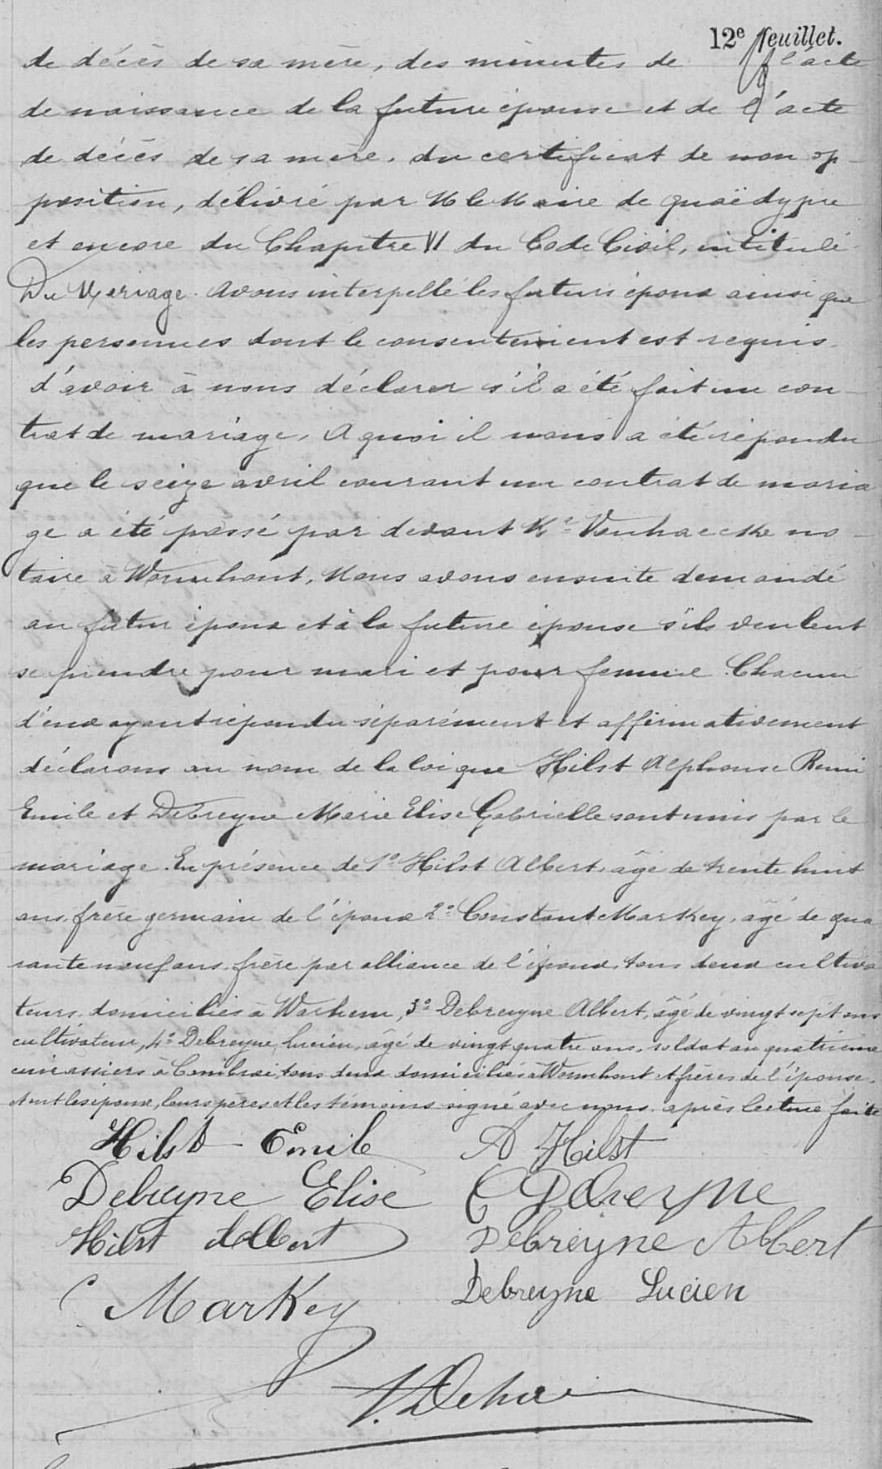 12e feuillet.
de décès de sa mère, des minutes de l'acte
de naissance de la future épouse et de l'acte
de décès de sa mère, du certificat de non op-
position, délivré par M le Maire de Quaëdypre
et encore du Chapitre VI du Code Civil, intitulé
Du Mariage. Avons interpellé les futurs époux ainsi que
les personnes dont le consentement est requis
d'avoir à nous déclarer s'il a été fait un con-
trat de mariage, A quoi il nous a été répondu
que le seize avril courant un contrat de maria
ge a été passé par devant Me Vanhaecke no-
taire à Wormhout, Nous avons ensuite demandé
au futur époux et à la future épouse s'ils veulent
se prendre pour mari et pour femme. Chacun
d'eux ayant répondu séparément et affirmativement
déclarons au nom de la loi que Hilst Alphonse Remi
Emile et Debreyne Marie Elise Gabrielle sont unis par le
mariage. En présence de 1o Hilst Albert, âgé de trente huit
ans, frère germain de l'époux 2o Constant Markey, âgé de qua
rante neuf ans, frère par alliance de l'époux, tous deux cultiva
teurs, domiciliés à Warhem, 3o Debreyne Albert, âgé de vingt sept ans
cultivateur, 4o Debreyne Lucien, âgé de vingt quatre ans, soldat au quatrième
cuirassiers à Cambrai, tous deux domiciliés à Wormhout et frères de l'épouse.
et ont les époux, leurs pères et les témoins signé avec nous après lecture faite
Hilst Emile A Hilst
Debreyne Elise C Debreyne
Hilst Albert Debreyne Albert
C Markey Debreyne Lucien